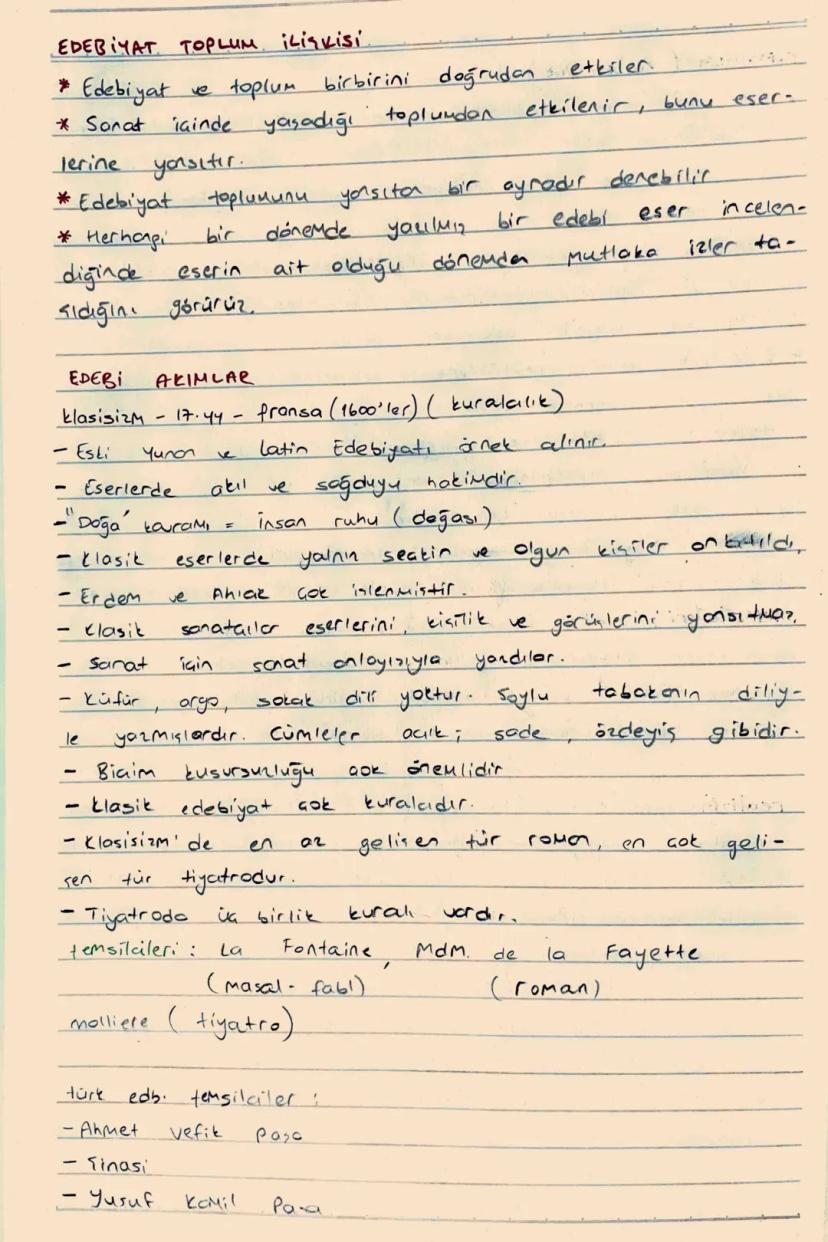 EDEBİYAT TOPLUM İLİŞKİSİ
* Edebiyat ve toplum birbirini doğrudan etkiler.
* Sanat içinde yaşadığı toplumdan etkilenir, bunu eser-
lerine yansıtır.
* Edebiyat toplumunu yansıtan bir aynadır denebilir
* Herhangi bir dönemde yazılmış bir edebi eser incelen-
diğinde eserin ait olduğu dönemden mutlaka izler ta-
şıdığını görürüz.
EDEBİ AKIMLAR
klasisizm - 17.yy - fransa (1600'ler) ( kuralcılık)
- Eski Yunan ve Latin Edebiyatı örnek alınır.
- Eserlerde akıl ve sağduyu hakimdir.
- "Doğa" kavramı = insan ruhu ( doğası)
- Klasik eserlerde yalnın seçkin ve olgun kişiler anlatıldı,
- Erdem ve Ahlak çok işlenmiştir.
- Klasik sanatçılar eserlerini, kişilik ve görüşlerini yansıtmaz.
- Sanat için sanat anlayışıyla yazdılar.
- Küfür, argo, sokak dili yoktur. Soylu tabakanın diliy-
le yazmışlardır. Cümleler açık; sade, özdeyiş gibidir.
- Biçim kusursuzluğu çok önemlidir
- Klasik edebiyat çok kuralcıdır.
- Klasisizm'de en az gelişen tür roman, en çok geli-
şen tür tiyatrodur.
- Tiyatroda üç birlik kuralı vardır.
temsilcileri: La Fontaine, Mdm. de la Fayette
(masal - fabl) (roman)
molliere ( tiyatro)
türk edb. temsilciler :
- Ahmet Vefik Paşa
- Şinasi
- Yusuf Kamil Paşa